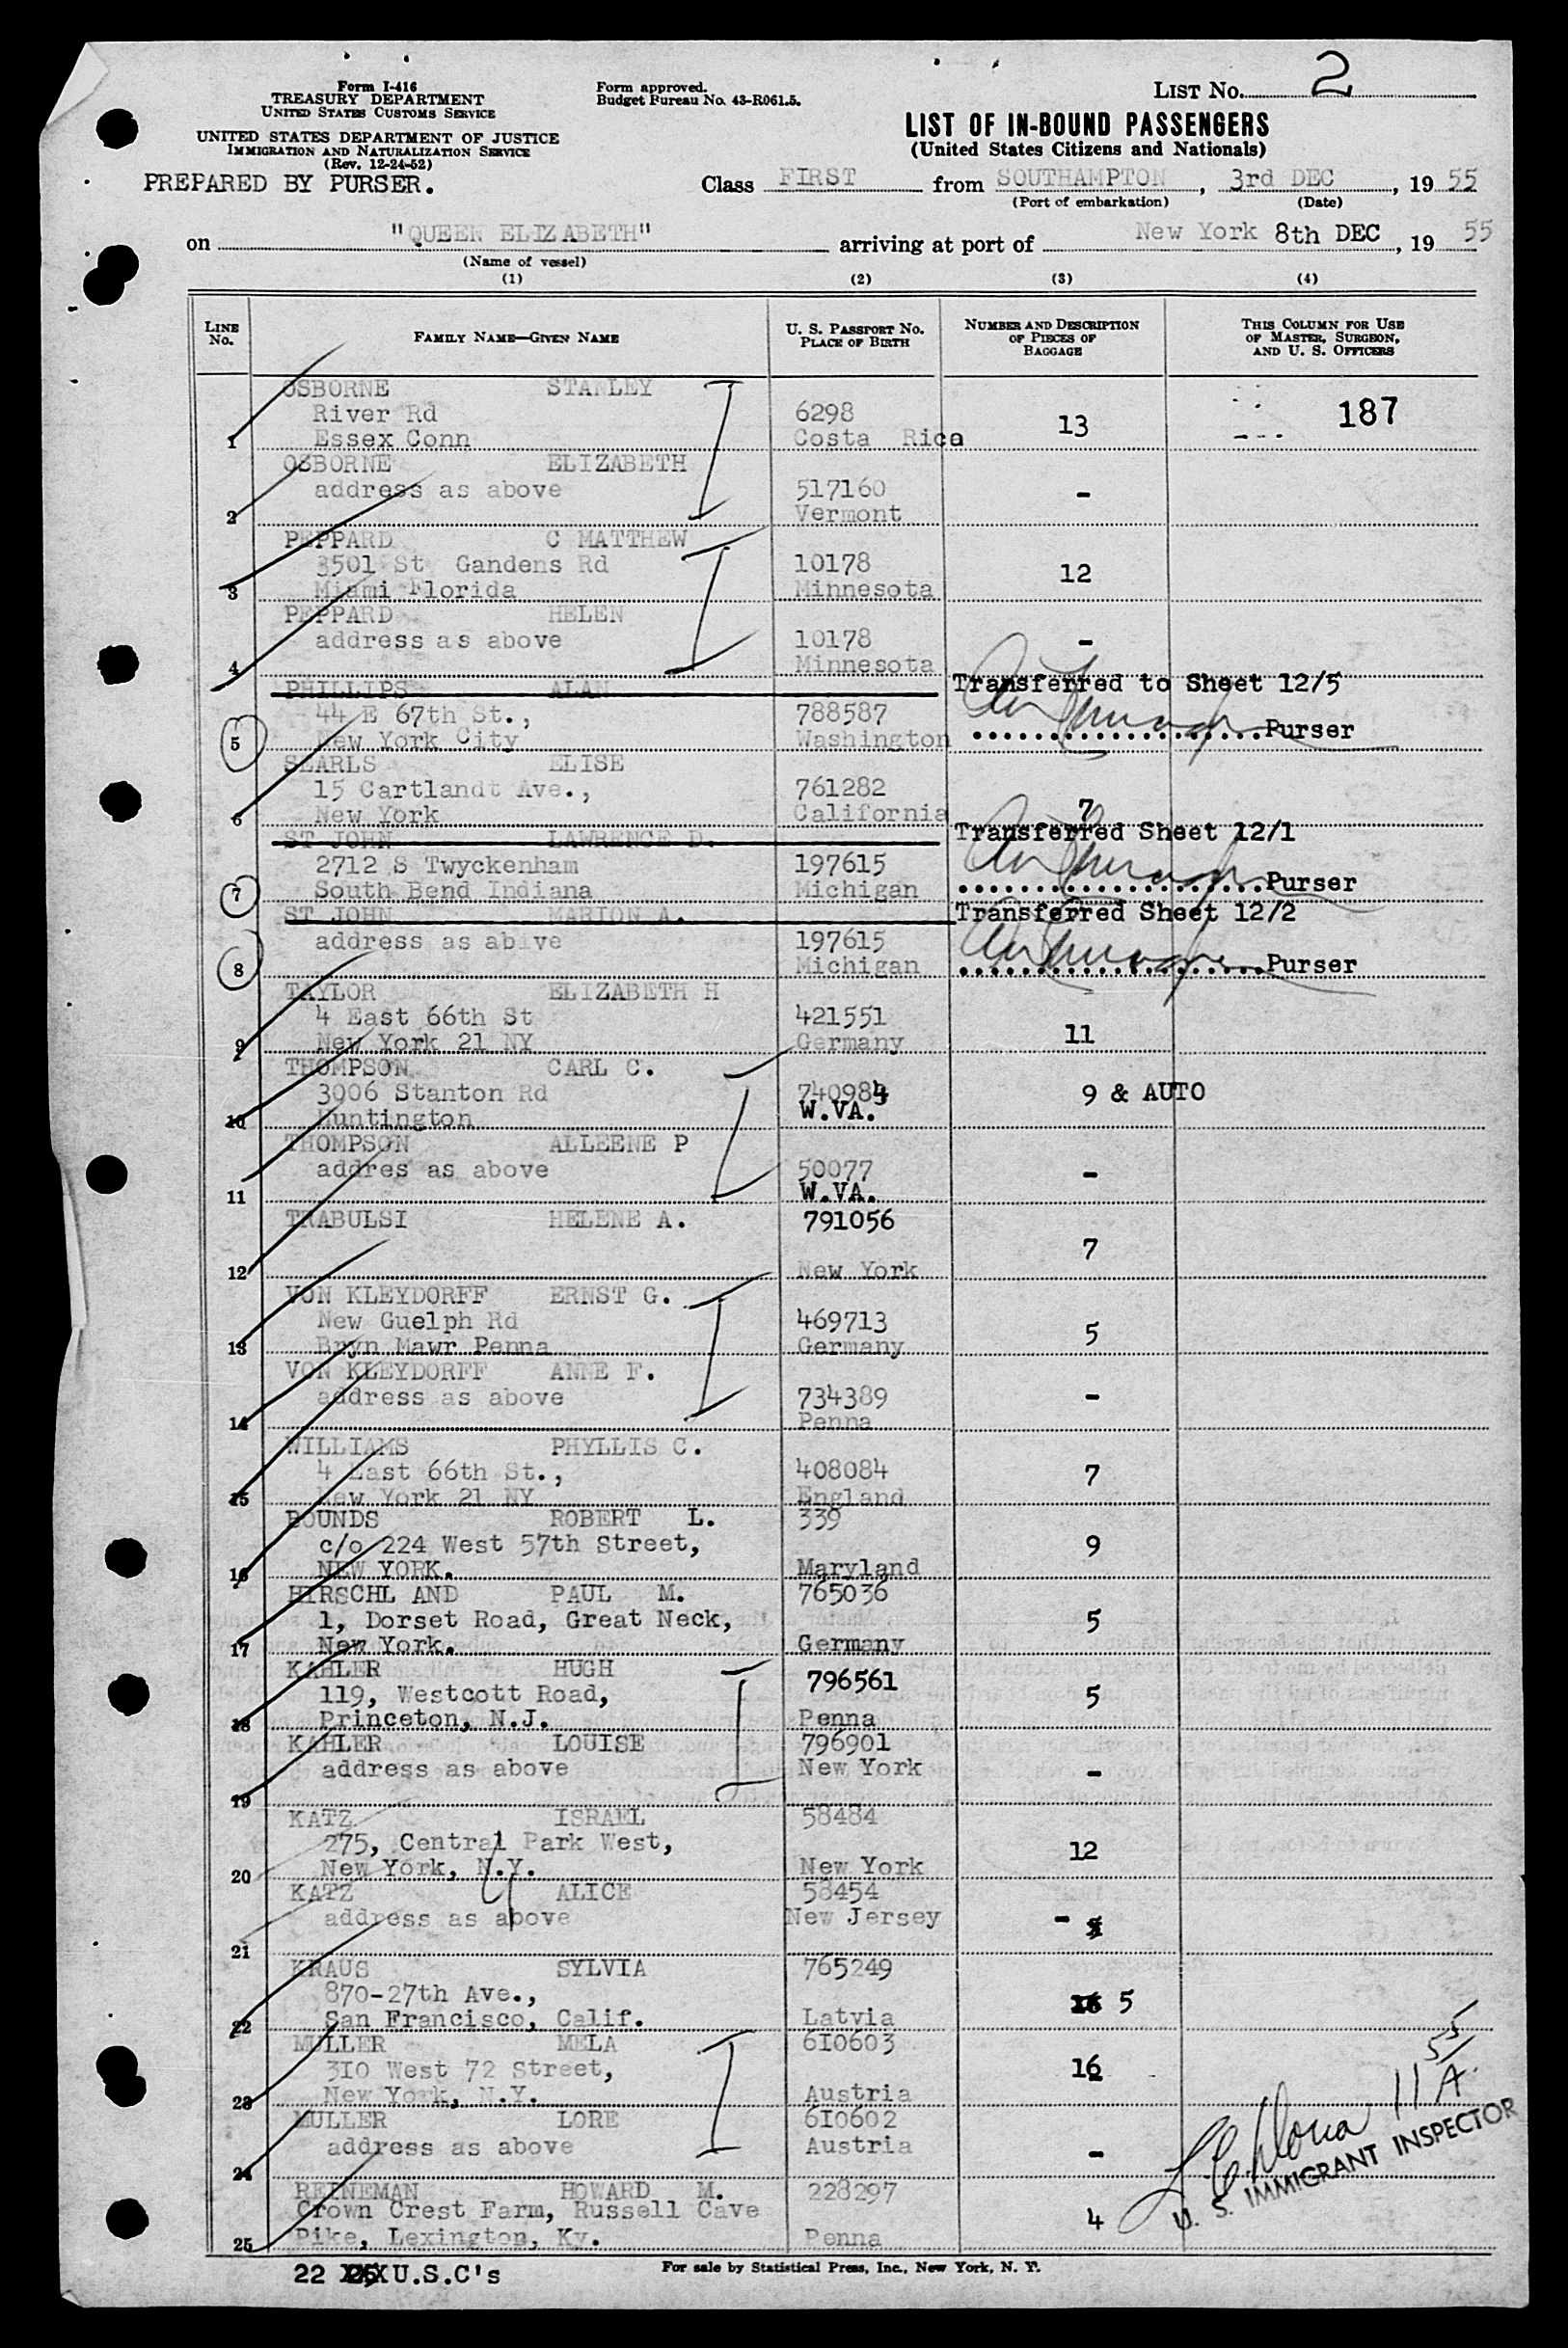 Form I-416
TREASURY DEPARTMENT
UNITED STATES CUSTOMS SERVICE
UNITED STATES DEPARTMENT OF JUSTICE
IMMIGRATION AND NATURALIZATION SERVICE
(Rev. 12-24-52)
PREPARED BY PURSER.
Form approved.
Budget Bureau No. 43-R061.5.
LIST No. 2
LIST OF IN-BOUND PASSENGERS
(United States Citizens and Nationals)
Class FIRST from SOUTHAMPTON, 3rd DEC, 19 55
(Port of embarkation) (Date)
on "QUEEN ELIZABETH" arriving at port of New York 8th DEC, 19 55
(Name of vessel)
(1) (2) (3) (4)
LINE No. FAMILY NAME—GIVEN NAME U. S. PASSPORT No. PLACE OF BIRTH NUMBER AND DESCRIPTION OF PIECES OF BAGGAGE THIS COLUMN FOR USE OF MASTER, SURGEON, AND U. S. OFFICERS
OSBORNE STANLEY
River Rd 6298 13 187
1 Essex Conn Costa Rica
OSBORNE ELIZABETH
address as above 517160 -
2 Vermont
PEPPARD C MATTHEW
3501 St Gandens Rd 10178 12
3 Miami Florida Minnesota
PEPPARD HELEN
address as above 10178 -
4 Minnesota
PHILLIPS ALAN Transferred to Sheet 12/5
44 E 67th St., 788587
5 New York City Washington Purser
SEARLS ELISE
15 Cartlandt Ave., 761282
6 New York California 7
ST JOHN LAWRENCE D. Transferred Sheet 12/1
2712 S Twyckenham 197615
7 South Bend Indiana Michigan Purser
ST JOHN MARION A. Transferred Sheet 12/2
address as abive 197615
8 Michigan Purser
TAYLOR ELIZABETH H
4 East 66th St 421551 11
9 New York 21 NY Germany
THOMPSON CARL C.
3006 Stanton Rd 740984 9 & AUTO
10 Huntington W.VA.
THOMPSON ALLEENE P
addres as above 50077 -
11 W.VA.
TRABULSI HELENE A. 791056
7
12 New York
VON KLEYDORFF ERNST G.
New Guelph Rd 469713 5
13 Bryn Mawr Penna Germany
VON KLEYDORFF ANNE F.
address as above 734389 -
14 Penna
WILLIAMS PHYLLIS C.
4 East 66th St., 408084 7
15 New York 21 NY England
BOUNDS ROBERT L. 339
c/o 224 West 57th Street, 9
16 NEW YORK. Maryland
HIRSCHL AND PAUL M. 765036
1, Dorset Road, Great Neck, 5
17 New York. Germany
KAHLER HUGH 796561
119, Westcott Road, 5
18 Princeton, N.J. Penna
KAHLER LOUISE 796901
address as above New York -
19
KATZ ISRAEL 58484
275, Central Park West, 12
20 New York, N.Y. New York
KATZ ALICE 58454
address as above New Jersey -
21
KRAUS SYLVIA 765249
870-27th Ave., 5
22 San Francisco, Calif. Latvia
MULLER MELA 610603
310 West 72 Street, 16
23 New York, N.Y. Austria
MULLER LORE 610602
address as above Austria -
24
REINEMAN HOWARD M. 228297
Crown Crest Farm, Russell Cave 4
25 Pike, Lexington, Ky. Penna
11A
55
U. S. IMMIGRANT INSPECTOR
22 U.S.C's
For sale by Statistical Press, Inc., New York, N. Y.